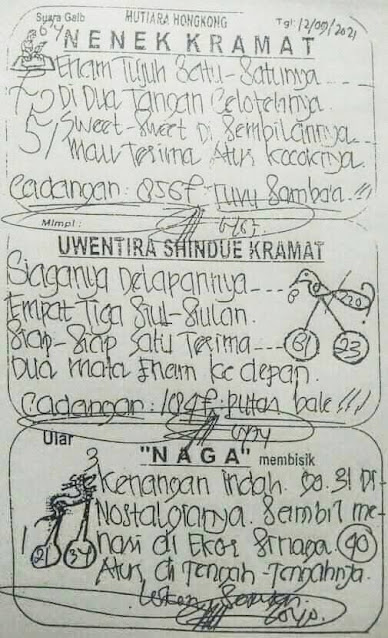 Suara Gaib MUTIARA HONGKONG Tgl: 12/09/2021
64
NENEK KRAMAT
Enam Tujuh Satu-Satunya
75 Di Dua Tangan Celotehnya
51 Sweet-Sweet Di Sembilannya
Mau Terima Atur Kocoknya.
Cadangan: 0567 Samba'a !!!
Mimpi :
UWENTIRA SHINDUE KRAMAT
Siaganya Delapannya
Empat-Tiga Siul-Siulan. 20
Siap-Siap Satu Terima 81 23
Dua mata Enam ke depan.
Cadangan: putar bale !!!
Ular
3
"NAGA" membisik
Kenangan indah. 90. 31 Di-
Nostalgianya. Sembil me-
1 nasi di Ekor Sinaga. 40
21 34
Atur di Tengah-Tengahnya.